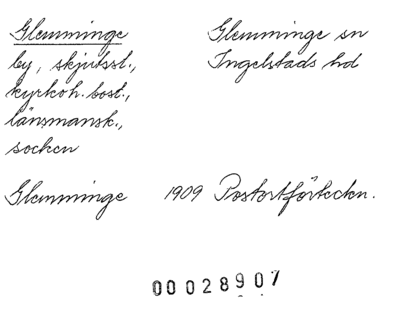 Glemminge
by, skjutsst.,
kyrkoh. bost.,
länsmansk.,
socken
Glemminge sn
Ingelstads hd
Glemminge 1909 Postortförteckn.
00028907